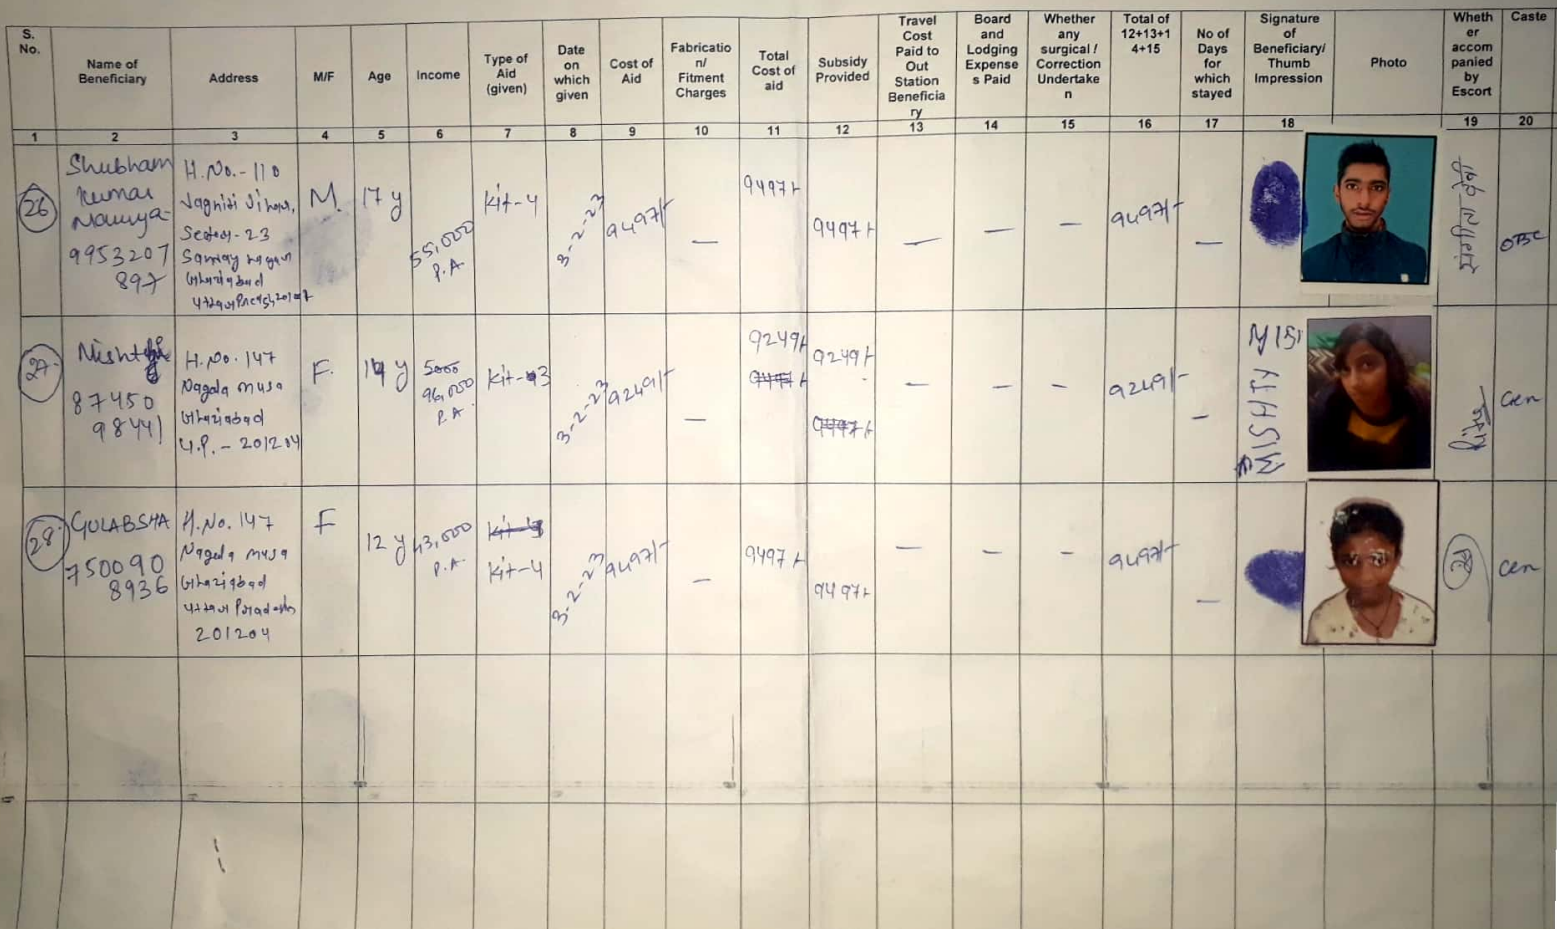 S. No.
Name of Beneficiary
Address
M/F
Age
Income
Type of Aid (given)
Date on which given
Cost of Aid
Fabricatio n/ Fitment Charges
Total Cost of aid
Subsidy Provided
Travel Cost Paid to Out Station Beneficia ry
Board and Lodging Expense s Paid
Whether any surgical / Correction Undertake n
Total of 12+13+1 4+15
No of Days for which stayed
Signature of Beneficiary/ Thumb Impression
Photo
Wheth er accom panied by Escort
Caste
1 2 3 4 5 6 7 8 9 10 11 12 13 14 15 16 17 18 19 20
26
Shubham
Kumar
Maurya
9953207
897
H.No.-110
Jagriti Vihar,
Sector-23
Sanjay Nagar
Ghaziabad
M.
17 y
55,000
P.A
Kit-4
3-2-23
9497/-
—
9497/-
9497/-
—
—
—
9497/-
—
OBC
27
87450
98441
H.No. 147
Nagola musa
Ghaziabad
U.P. - 201204
F.
14 y
5000
96,000
P.A
Kit-3
3-2-23
9249/-
—
9249/-
9497/-
9249/-
9497/-
—
—
—
9249/-
—
Gen
28
GULABSHA
750090
8936
H.No. 147
Nagola musa
Ghaziabad
Uttar Pradesh
201204
F
12 y
43,000
P.A.
Kit-4
3-2-23
9497/-
—
9497/-
9497/-
—
—
—
9497/-
—
Gen